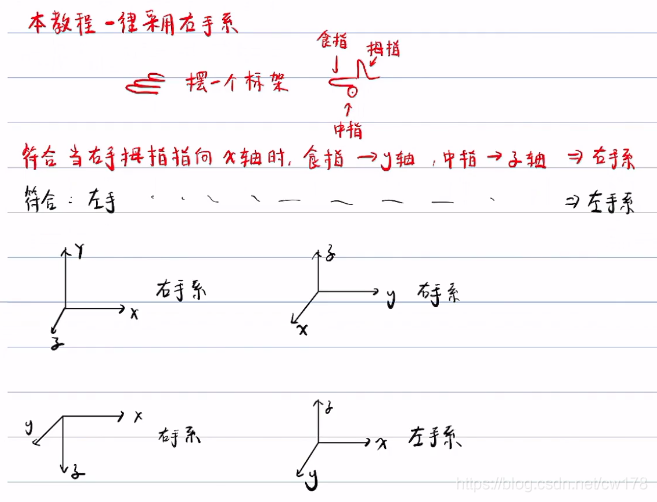 本教程一律采用右手系
食指 拇指
摆一个标架
中指
符合当右手拇指指向 x轴时, 食指 → y轴, 中指 → z轴 ⇒ 右手系
符合: 左手 ⇒ 左手系
Y z
右手系 y 右手系
x x
z
x z
y 右手系 x 左手系
z y
https://blog.csdn.net/cw178